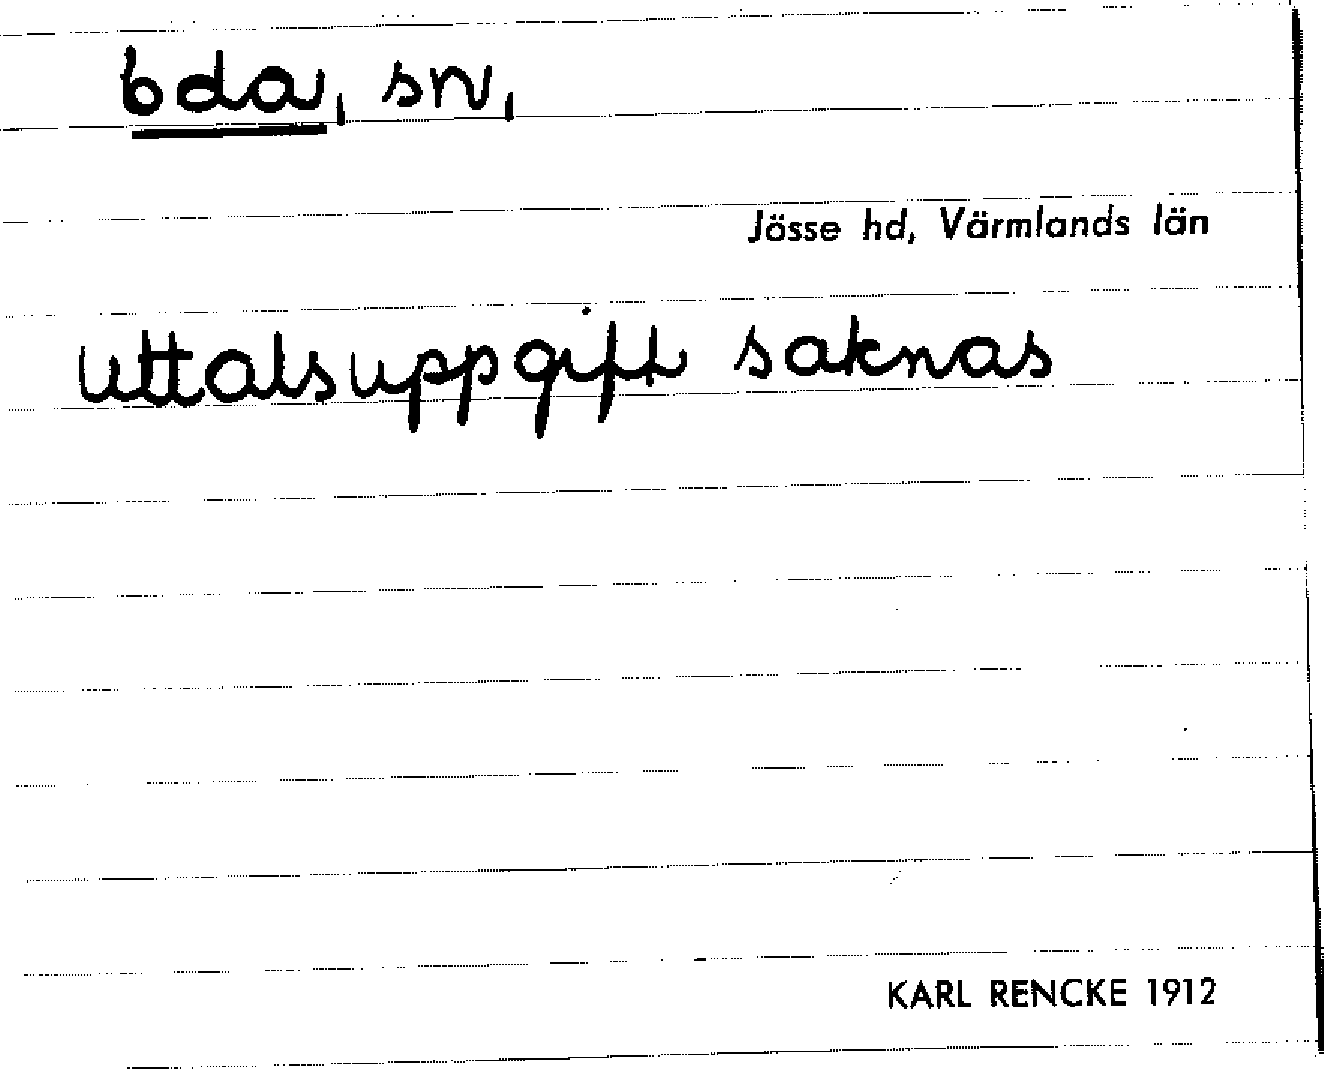 Eda, sn,
Jösse hd, Värmlands län
uttalsuppgift saknas
KARL RENCKE 1912